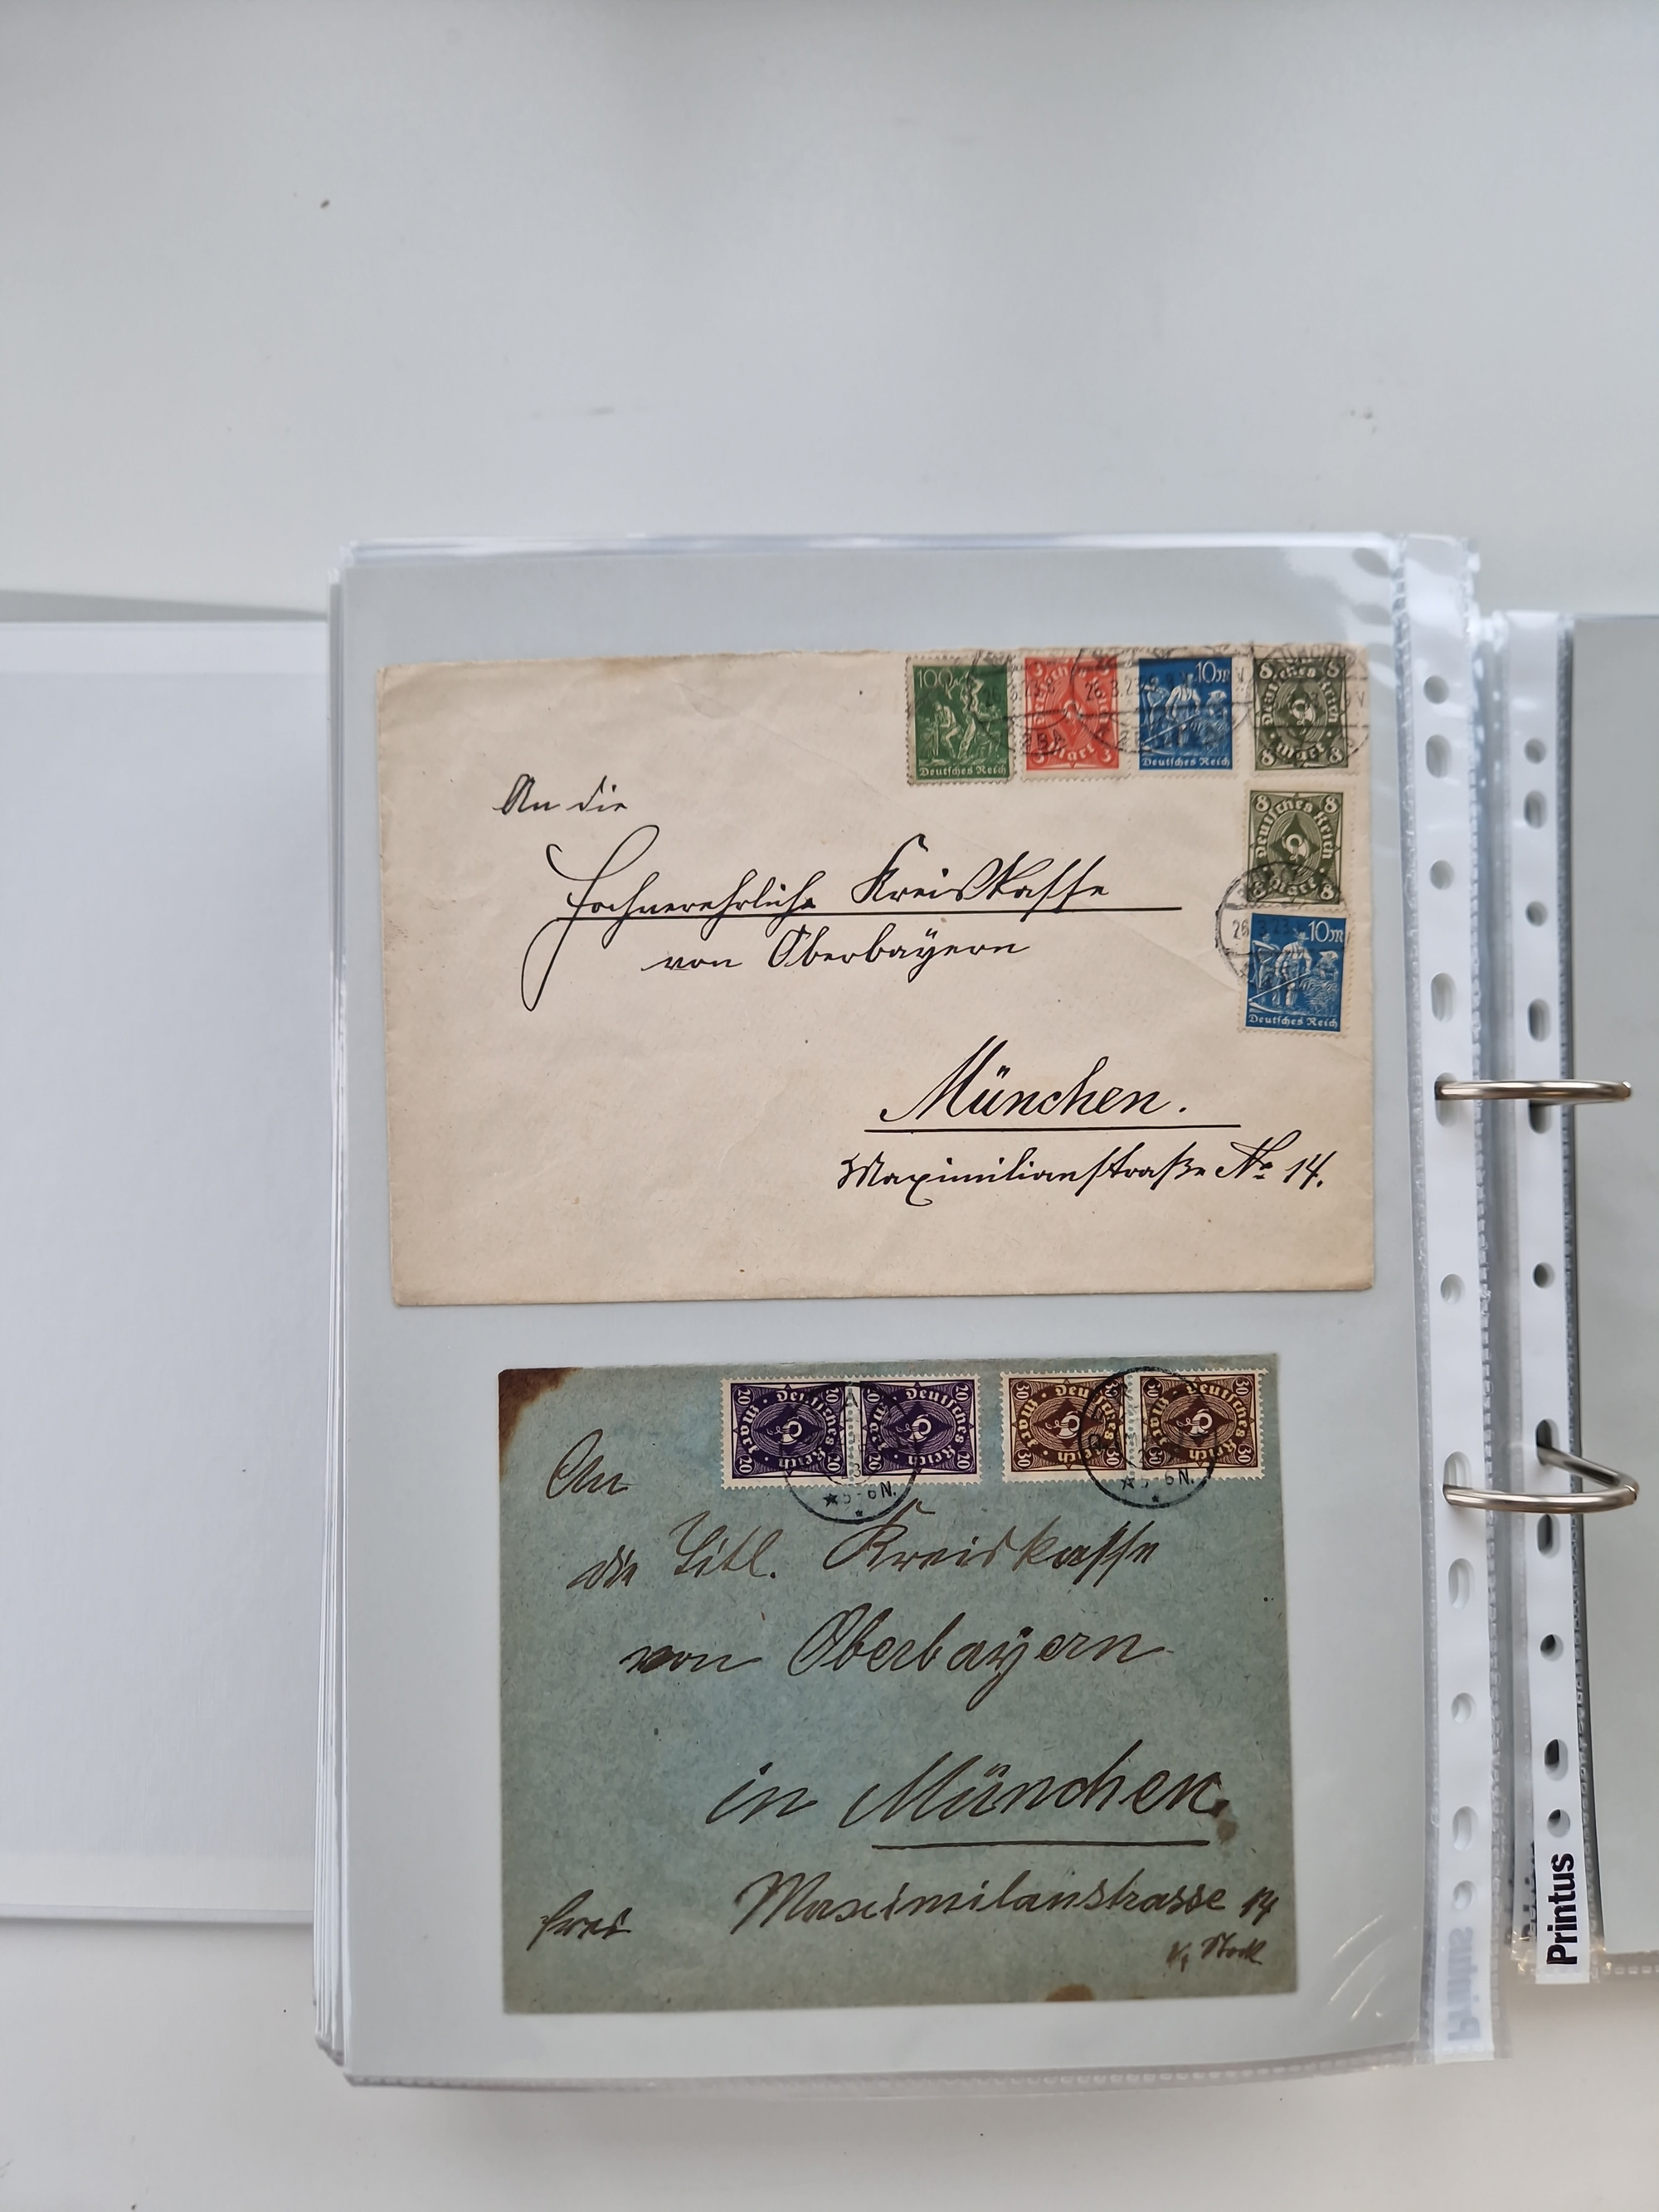 100
Deutsches Reich
3
3
Mark
3
3
10 M
Deutsches Reich
8
8
Deutsches Reich
Mark
8
8
26.3.23
8
8
Deutsches Reich
Mark
8
8
26
10 M
Deutsches Reich
An die
Hochverehrliche Kreiskasse
von Oberbayern
München.
Maximilianstraße No 14.
20
20
Deutsches Reich
Mark
20
20
20
20
Deutsches Reich
Mark
20
20
30
30
Deutsches Reich
Mark
30
30
30
30
Deutsches Reich
Mark
30
30
★5-6N.
★5-6N.
An
die Titl. Kreiskasse
von Oberbayern
in München.
Maximilanstrasse 14
frei
Stock
Printus